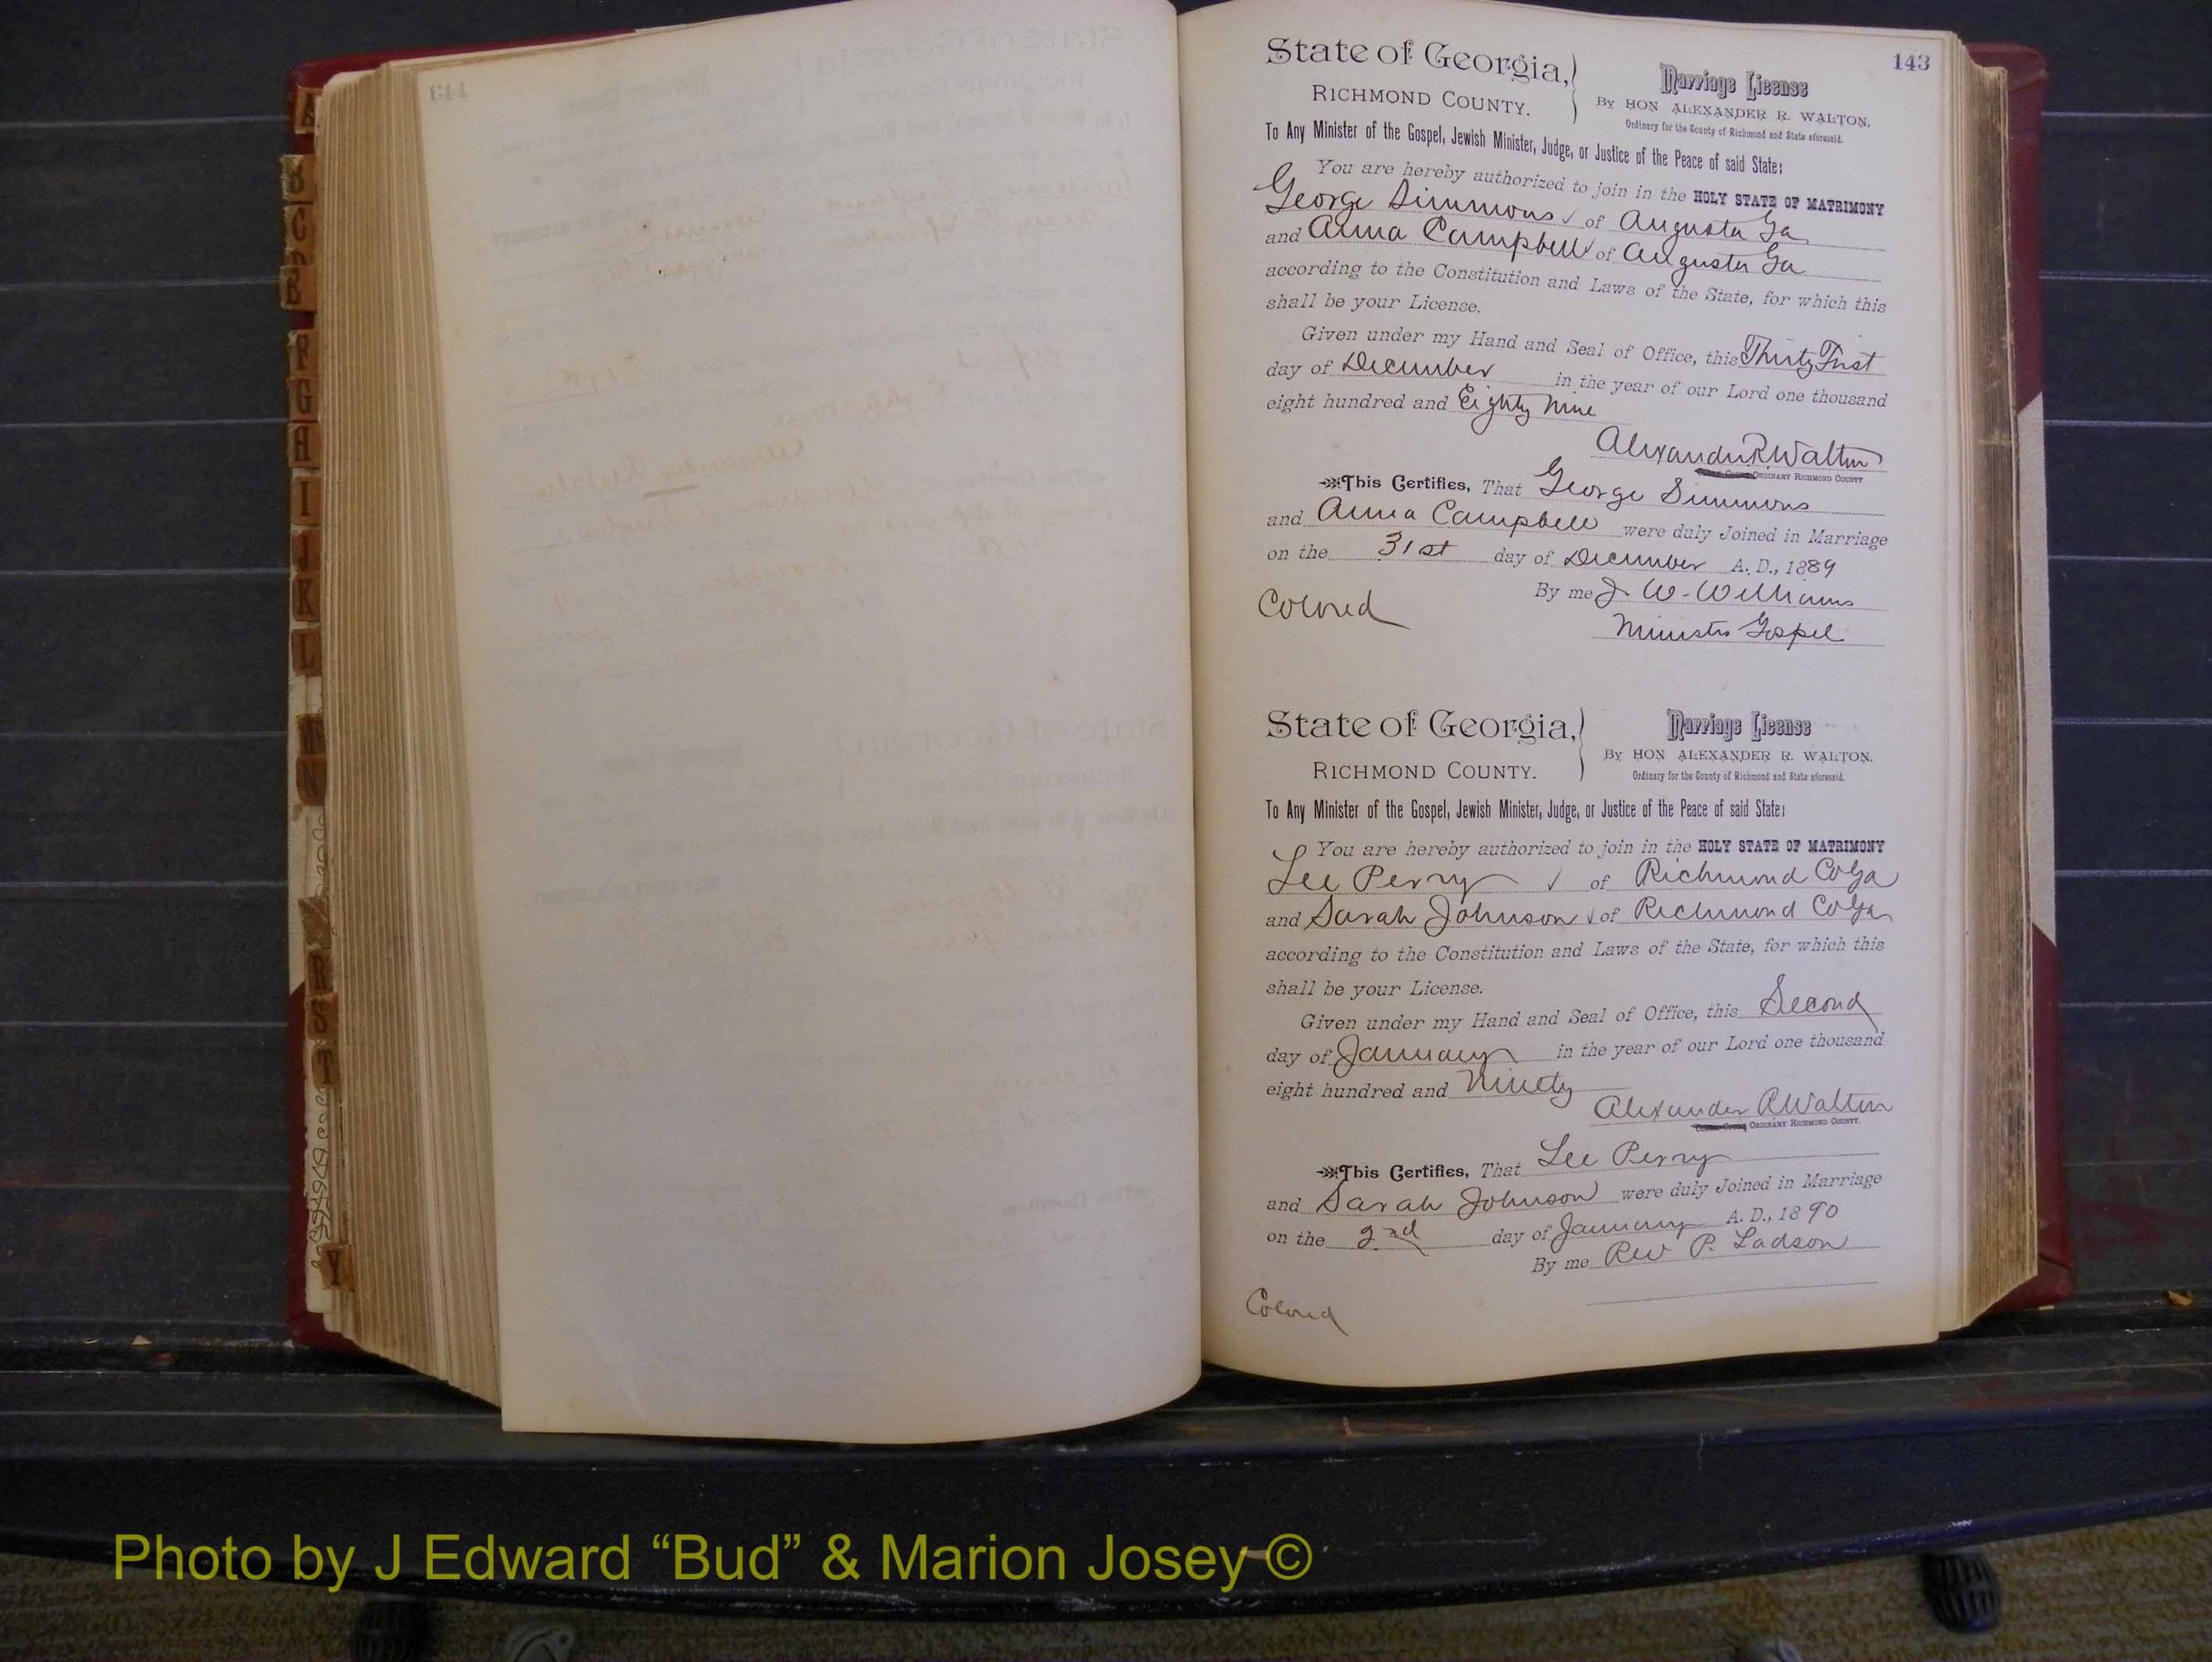 143
State of Georgia,
RICHMOND COUNTY.
Marriage License
By HON ALEXANDER R. WALTON,
Ordinary for the County of Richmond and State aforesaid.
To Any Minister of the Gospel, Jewish Minister, Judge, or Justice of the Peace of said State:
You are hereby authorized to join in the HOLY STATE OF MATRIMONY
George Simmons ✓ of Augusta Ga
and Anna Campbell ✓ of Augusta Ga
according to the Constitution and Laws of the State, for which this
shall be your License.
Given under my Hand and Seal of Office, this Thirty First
day of December in the year of our Lord one thousand
eight hundred and Eighty Nine
Alexander R. Walton
ORDINARY RICHMOND COUNTY
This Certifies, That George Simmons
and Anna Campbell were duly Joined in Marriage
on the 31st day of December A. D., 1889
By me J. W. Williams
Colored
Minister Gospel
State of Georgia,
RICHMOND COUNTY.
Marriage License
By HON ALEXANDER R. WALTON.
Ordinary for the County of Richmond and State aforesaid.
To Any Minister of the Gospel, Jewish Minister, Judge, or Justice of the Peace of said State:
You are hereby authorized to join in the HOLY STATE OF MATRIMONY
Lee Perry ✓ of Richmond Co Ga
and Sarah Johnson ✓ of Richmond Co Ga
according to the Constitution and Laws of the State, for which this
shall be your License.
Given under my Hand and Seal of Office, this Second
day of January in the year of our Lord one thousand
eight hundred and Ninety
Alexander R Walton
ORDINARY RICHMOND COUNTY.
This Certifies, That Lee Perry
and Sarah Johnson were duly Joined in Marriage
on the 2nd day of January A. D., 1890
By me Rev P. Ladson
Colored
A
B
C
E
F
G
H
I
J
K
L
M
N
R
S
T
Y
Photo by J Edward “Bud” & Marion Josey ©